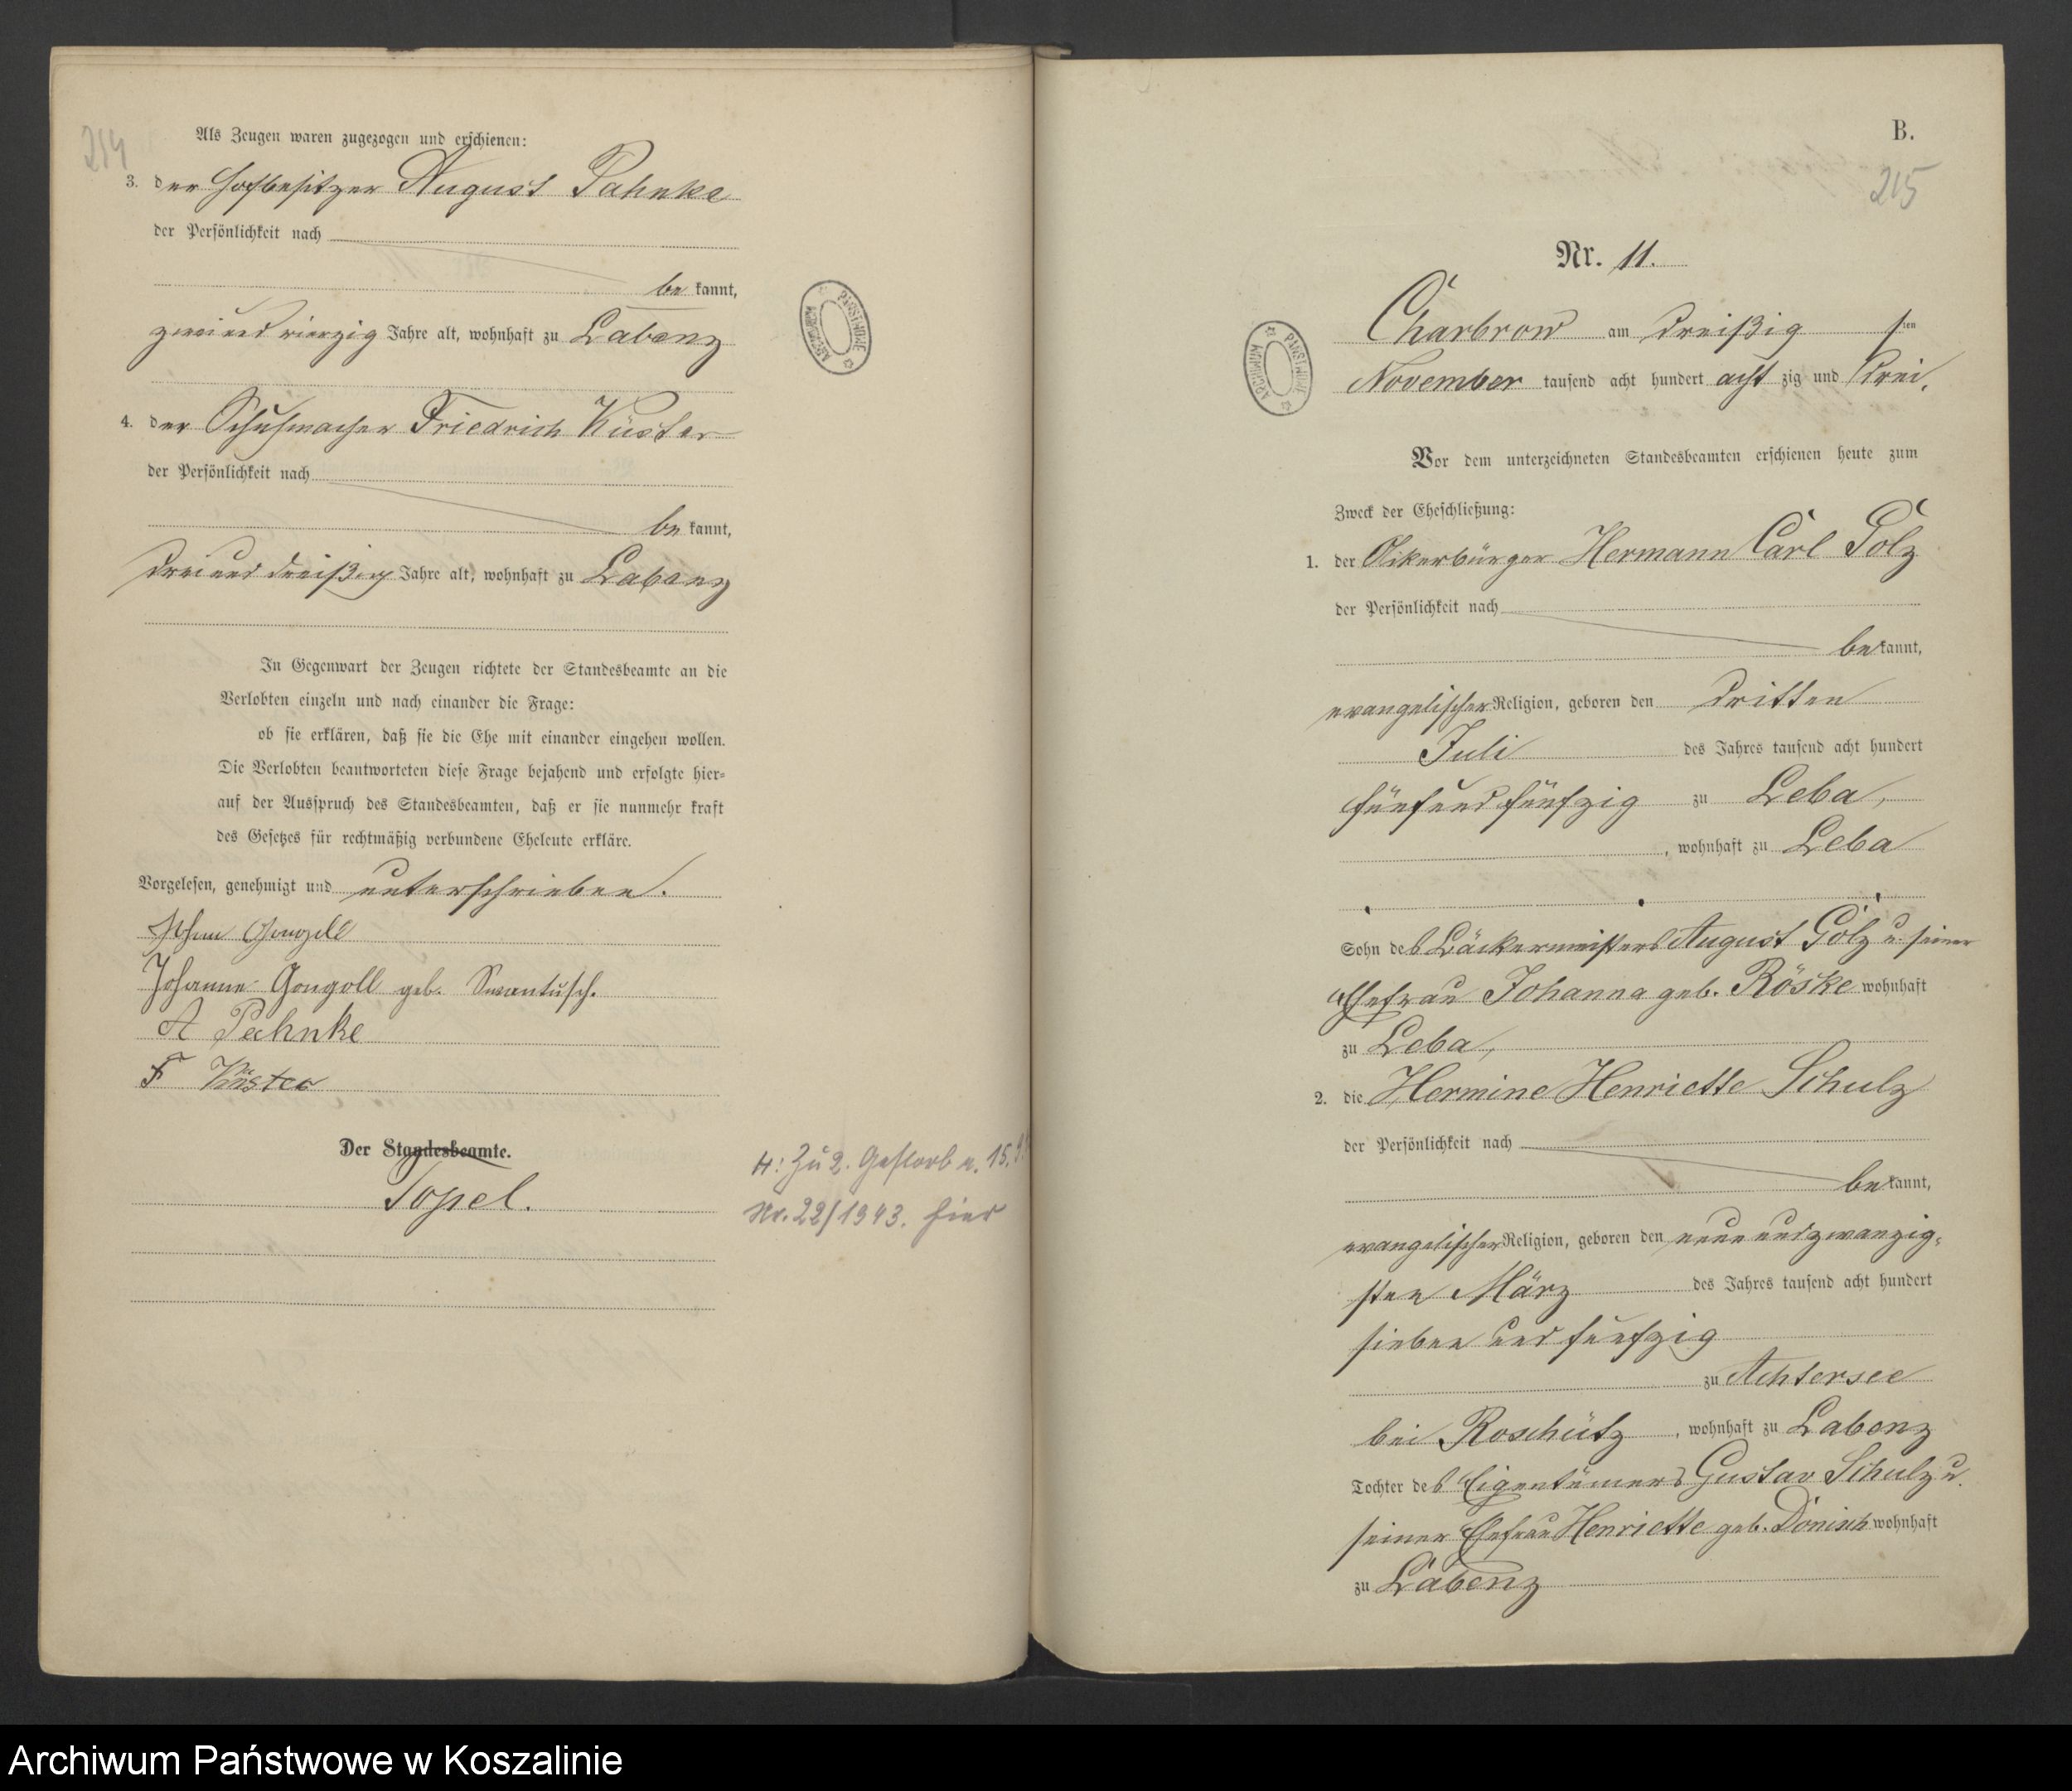 214
Als Zeugen waren zugezogen und erschienen:
3. der Hofbesitzer August Pahnke
der Persönlichkeit nach
be kannt,
zweiundvierzig Jahre alt, wohnhaft zu Labenz
4. der Schuhmacher Friedrich Küster
der Persönlichkeit nach
be kannt,
dreiunddreißig Jahre alt, wohnhaft zu Labenz
In Gegenwart der Zeugen richtete der Standesbeamte an die
Verlobten einzeln und nach einander die Frage:
ob sie erklären, daß sie die Ehe mit einander eingehen wollen.
Die Verlobten beantworteten diese Frage bejahend und erfolgte hier-
auf der Ausspruch des Standesbeamten, daß er sie nunmehr kraft
des Gesetzes für rechtmäßig verbundene Eheleute erkläre.
Vorgelesen, genehmigt und unterschrieben.
Gongoll
Johanne Gongoll geb. Swantusch.
A Pahnke
F Küster
Der Standesbeamte.
Topel.
H: Zu 2. Gestorben 15.
Nr. 22/1943. hier
PAŃSTWOWE ARCHIWUM
B.
215
Nr. 11.
PAŃSTWOWE ARCHIWUM
Charbrow am dreißig sten
November tausend acht hundert acht zig und drei.
Vor dem unterzeichneten Standesbeamten erschienen heute zum
Zweck der Eheschließung:
1. der Ackerbürger Hermann Carl Gölz
der Persönlichkeit nach
be kannt,
evangelischer Religion, geboren den dritten
Juli des Jahres tausend acht hundert
fünfundfünfzig zu Leba,
, wohnhaft zu Leba
Sohn des Bäckermeisters August Gölz u. seiner
Ehefrau Johanna geb. Röske wohnhaft
zu Leba,
2. die Hermine Henriette Schulz
der Persönlichkeit nach
be kannt,
evangelischer Religion, geboren den neunundzwanzig-
sten März des Jahres tausend acht hundert
sieben und fünfzig
zu Achtersee
bei Roschütz, wohnhaft zu Labenz
Tochter des Eigentümers Gustav Schulz u.
seiner Ehefrau Henriette geb. Dönisch wohnhaft
zu Labenz
Archiwum Państwowe w Koszalinie